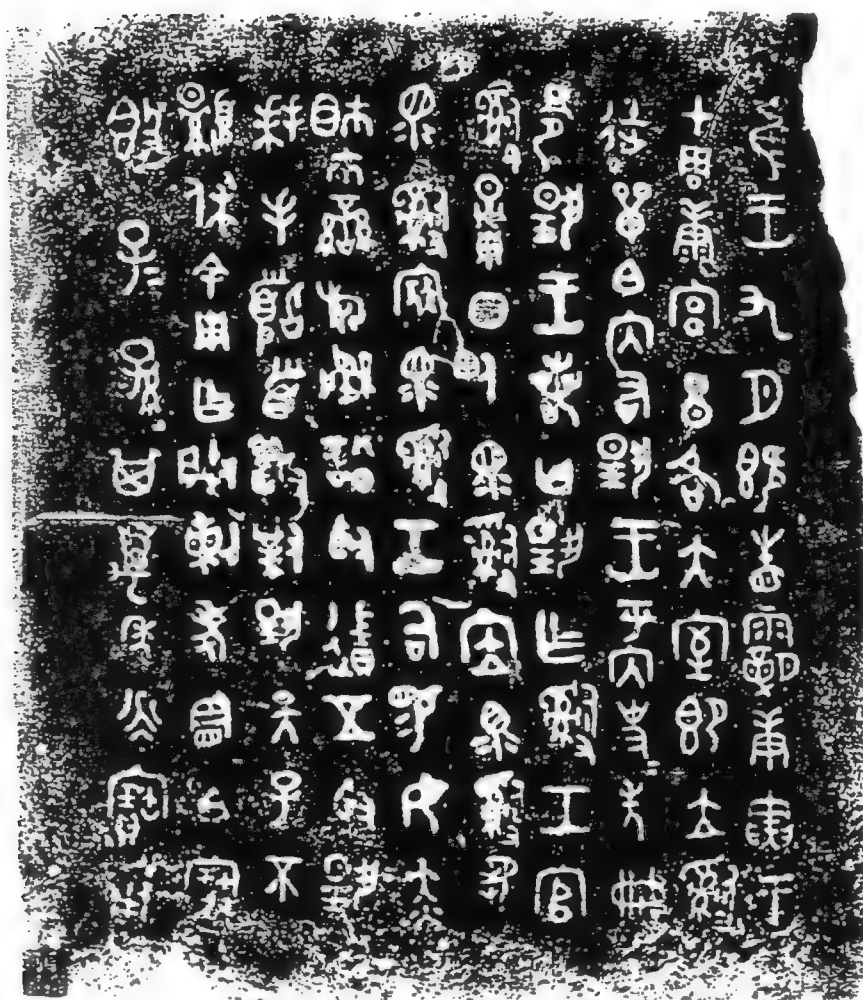 隹王九月既眚霸庚寅王
才周康宮旦各大室即立𤔲
徒單白內右揚王乎內史史冊
令揚王若曰揚乍𤔲工官
𤔲量田甸眔𤔲㕇眔𤔲芻
眔𤔲寇眔𤔲工司易女赤
巿䜌旂訊訟取五鋝揚
拜手𩒨首敢對揚天子不
顯休余用乍朕剌考憲白寶
𣪘子子孫孫其萬年永寶用